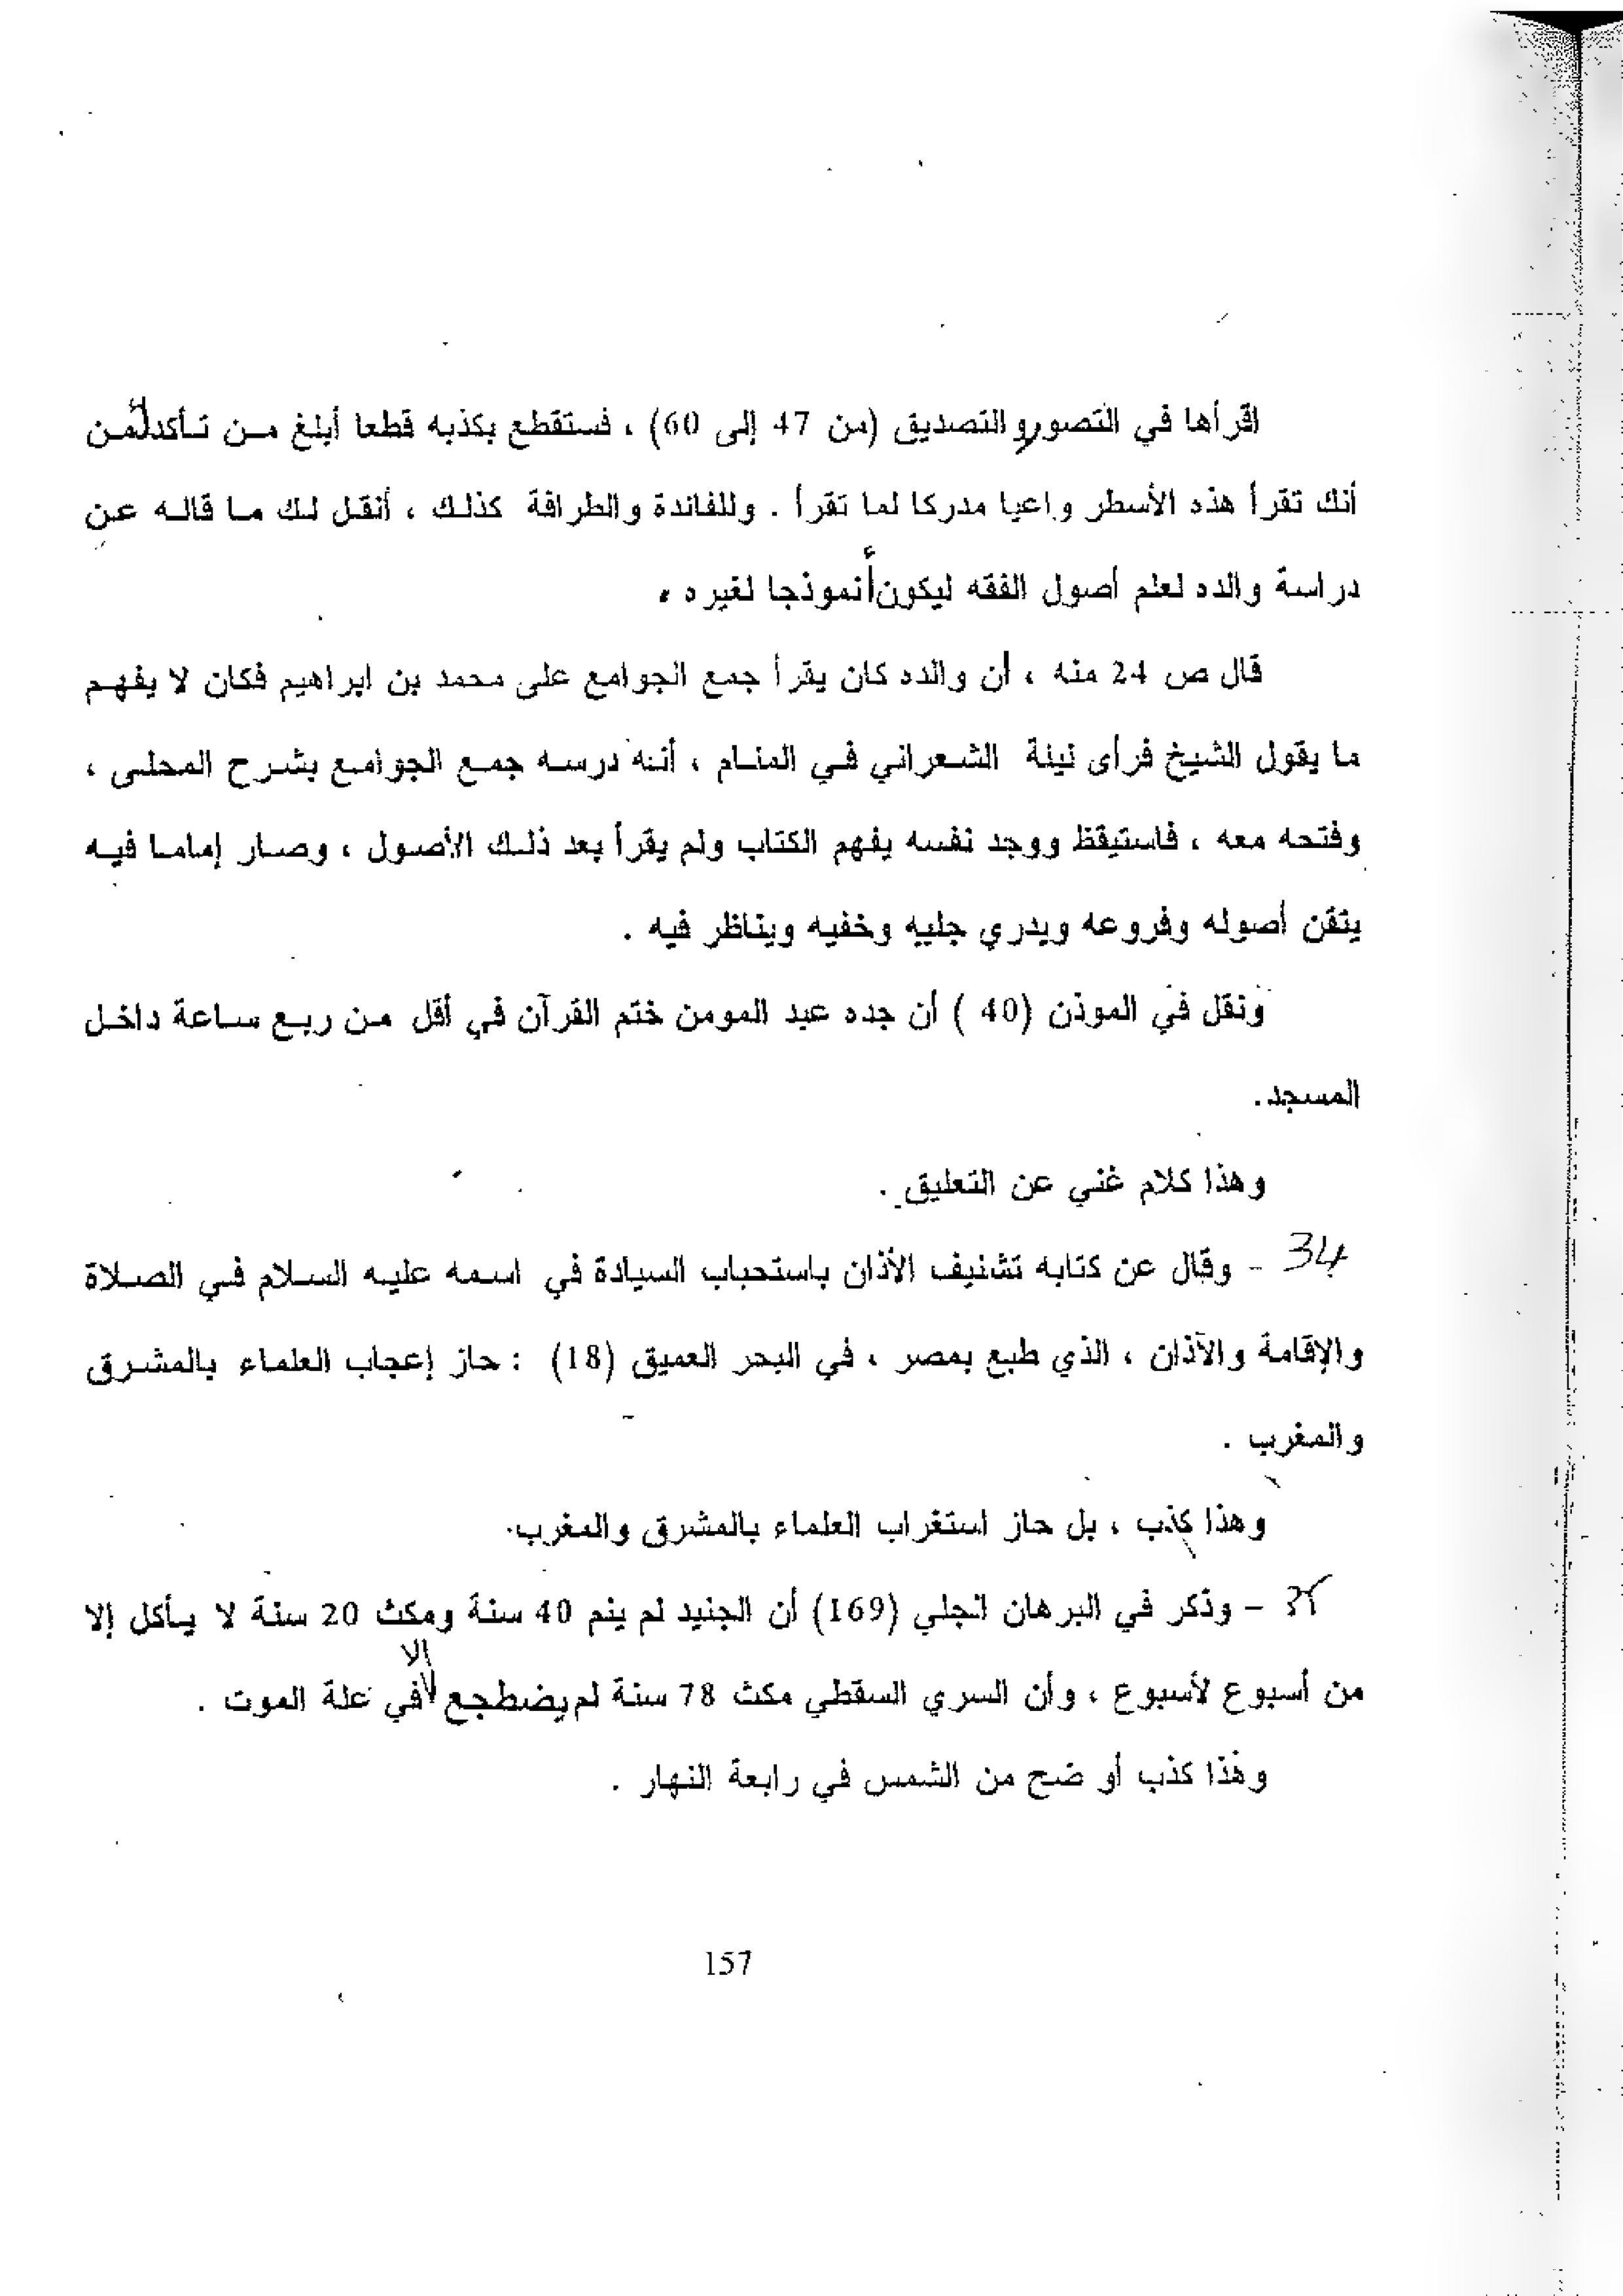 اقرأها في التصور و التصديق (من 47 إلى 60) ، فستقطع بكذبه قطعا أبلغ من تأكدك من
أنك تقرأ هذه الأسطر واعيا مدركا لما تقرأ . وللفائدة والطرافة كذلك ، أنقل لك ما قاله عن
دراسة والده لعلم أصول الفقه ليكون أنموذجا لغيره .
قال ص 24 منه ، أن والده كان يقرأ جمع الجوامع على محمد بن ابراهيم فكان لا يفهم
ما يقول الشيخ فرأى ليلة الشعراني في المنام ، أنه درسه جمع الجوامع بشرح المحلى ،
وفتحه معه ، فاستيقظ ووجد نفسه يفهم الكتاب ولم يقرأ بعد ذلك الأصول ، وصار إماما فيه
يتقن أصوله وفروعه ويدري جليه وخفيه ويناظر فيه .
ونقل في الموذن (40 ) أن جده عبد المومن ختم القرآن في أقل من ربع ساعة داخل
المسجد.
وهذا كلام غني عن التعليق .
34 - وقال عن كتابه تشنيف الأذان باستحباب السيادة في اسمه عليه السلام في الصلاة
والإقامة والآذان ، الذي طبع بمصر ، في البحر العميق (18) : حاز إعجاب العلماء بالمشرق
والمغرب .
وهذا كذب ، بل حاز استغراب العلماء بالمشرق والمغرب.
- وذكر في البرهان الجلي (169) أن الجنيد لم ينم 40 سنة ومكث 20 سنة لا يأكل إلا
من أسبوع لأسبوع ، وأن السري السقطي مكث 78 سنة لم يضطجع الا في علة الموت .
وهذا كذب أو ضح من الشمس في رابعة النهار .
157